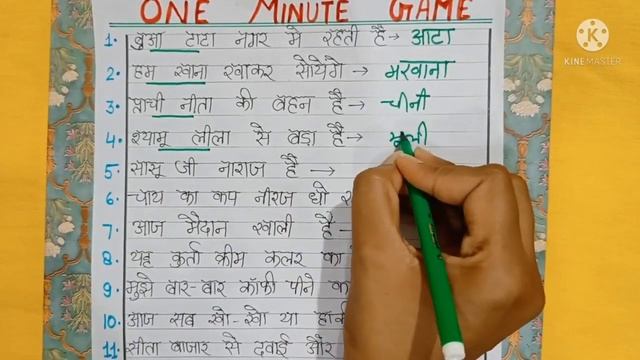 ONE MINUTE GAME
KINEMASTER
1. बुआ टाटा नगर मे रहती है → आटा
2. हम खाना खाकर सोयेंगे → मखाना
3. प्राची नीता की बहन है → चीनी
4. श्यामू लीला से बड़ा है →
5. सासू जी नाराज है →
6. चाय का कप नीरज धो
7. आज मैदान खाली है
8. यह कुर्ता क्रीम कलर का
9. मुझे बार-बार कॉफी पीने
10. आज सब खो-खो या
11. सीता बाजार से दवाई और